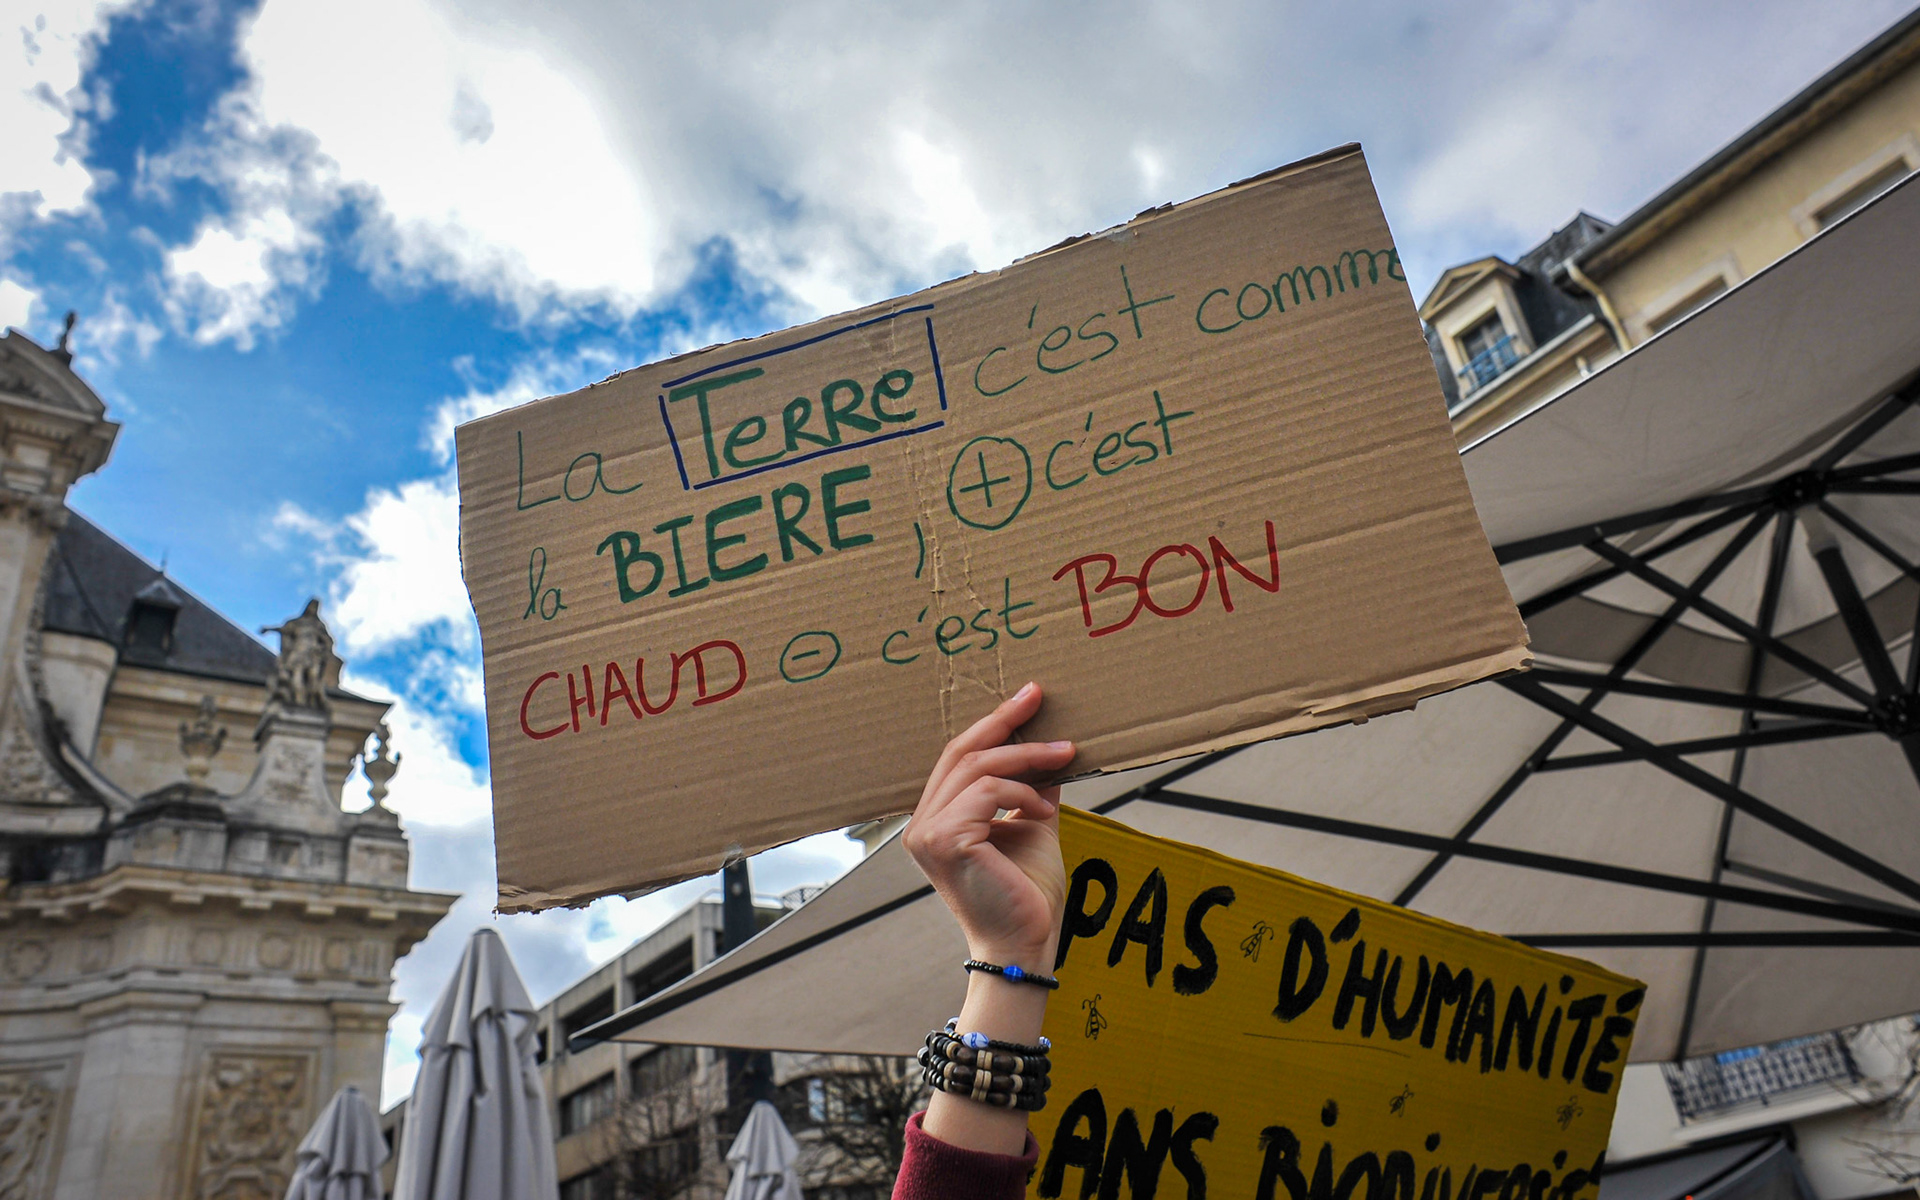 La Terre c'est comme
la BIERE, + c'est
CHAUD - c'est BON
PAS D'HUMANITÉ
ANS BIODIVERSI